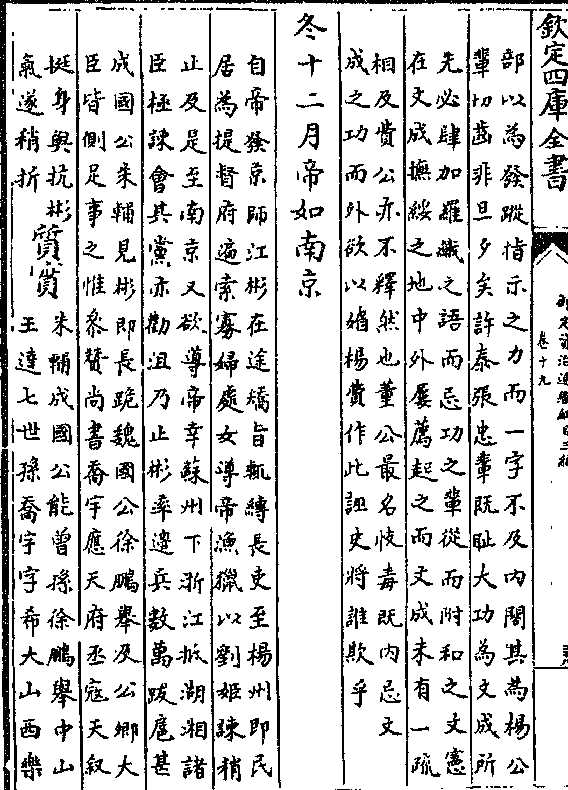 欽定四庫全書
御定資治通鑑綱目三編
卷十九
部以為發蹤指示之力而一字不及内閣其為楊公
輩切齒非旦夕矣許泰張忠輩既耻大功為文成所
先必肆加羅織之語而忌功之輩從而附和之文憲
在文成撫綏之地中外屢薦起之而文成未有一疏
相及費公亦不釋然也董公最名忮毒既内忌文
成之功而外欲以媚楊費作此誣史將誰欺乎
冬十二月帝如南京
自帝發京師江彬在途矯旨輒縛長吏至楊州即民
居為提督府遍索寡婦處女導帝漁獵以劉姬諫稍
止及是至南京又欲導帝幸蘇州下浙江抵湖湘諸
臣極諫會其黨亦勸沮乃止彬率邊兵數萬跋扈甚
成國公朱輔見彬即長跪魏國公徐鵬舉及公卿大
臣皆側足事之惟參贊尚書喬宇應天府丞寇天叙
挺身與抗彬
氣遂稍折
質實
朱輔成國公能曾孫徐鵬舉中山
王達七世孫喬宇字希大山西樂